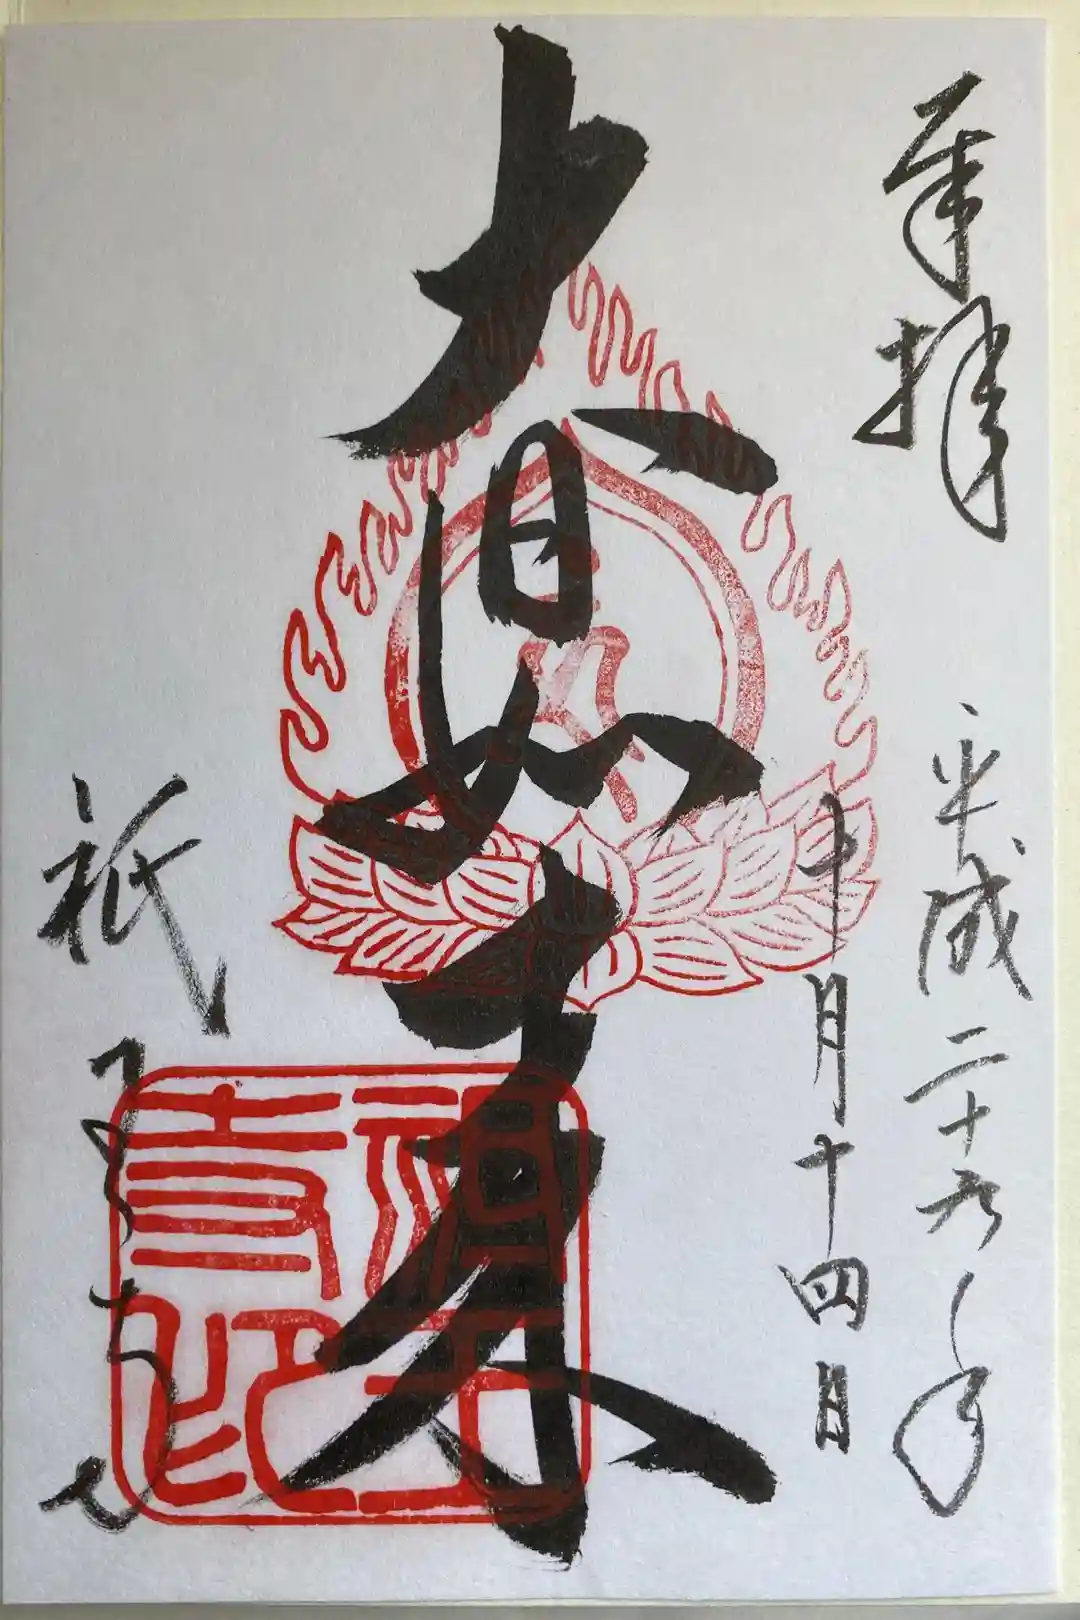 奉拝
平成二十九年
十月十四日
大日如来
祇王寺
祇王
寺印